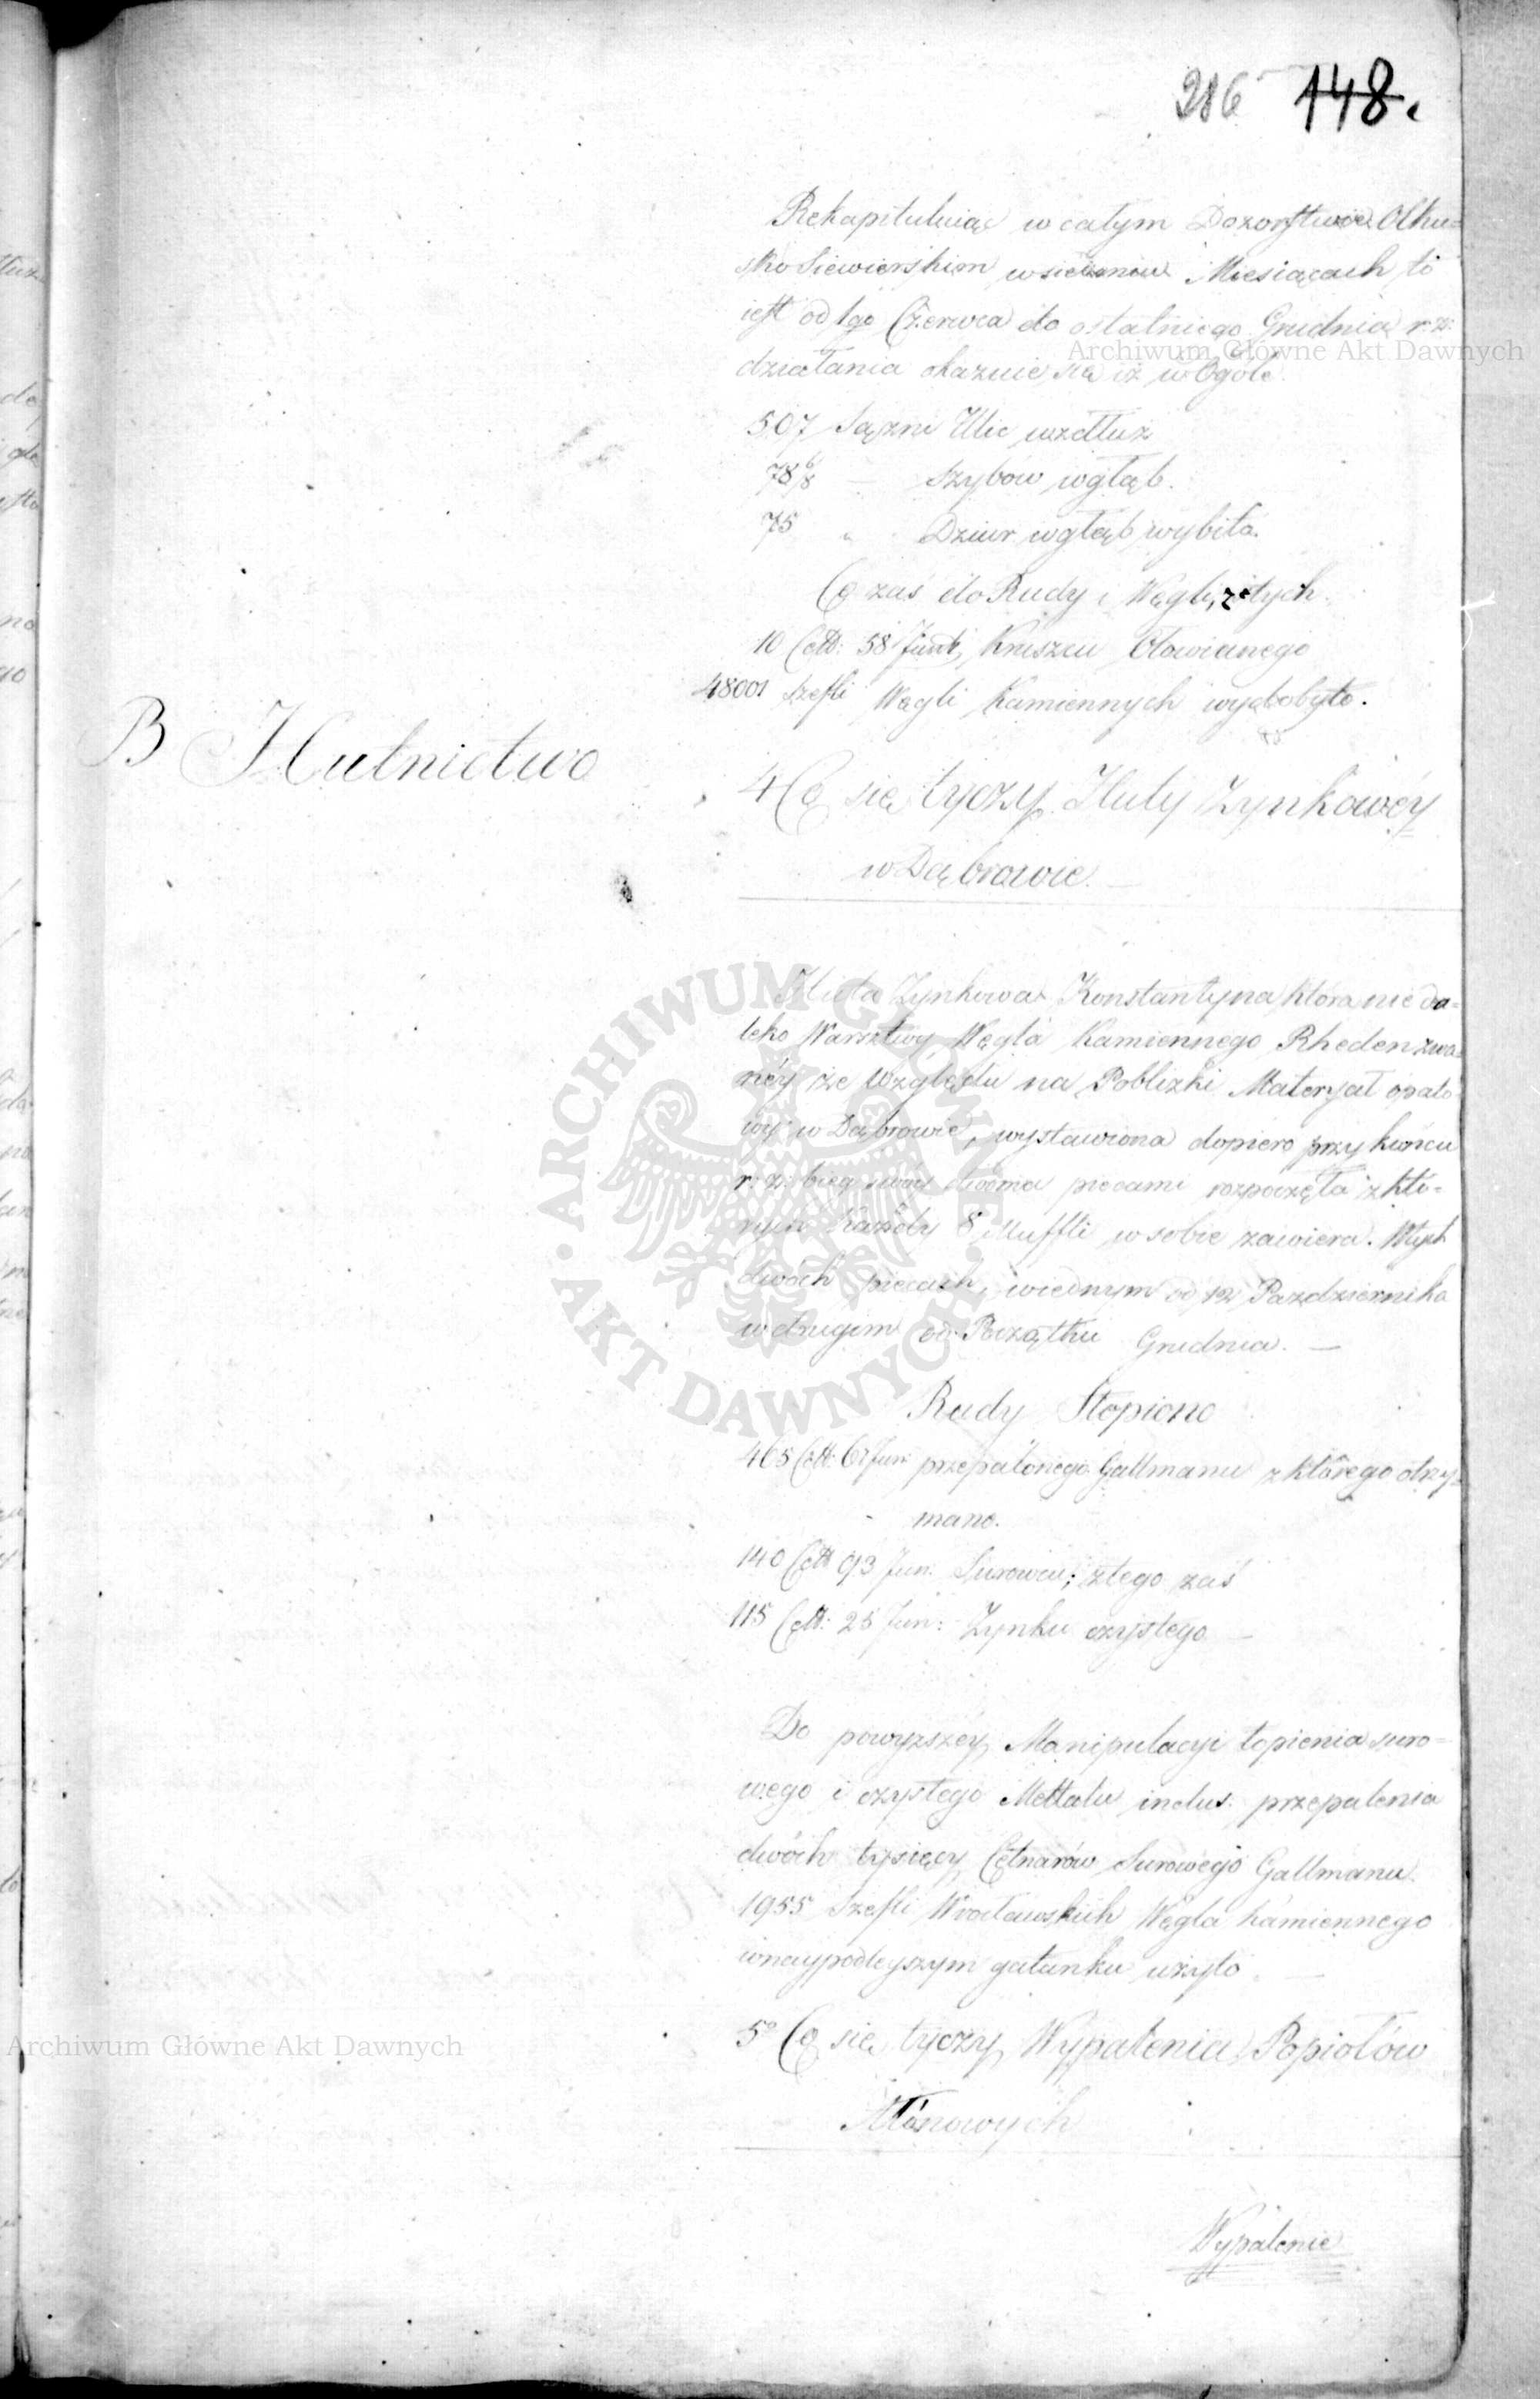 286 148.
Rekapituluiąc w całym Dozorstwie Olku=
sko Siewierskim w siedmiu Miesiącach to
iest od 1go Czerwca do ostatniego Grudnia r. z.
Archiwum Główne Akt Dawnych
działania okazuie się iż w Ogóle
507 Sążni Ulic wzdłuż
78 6/8 — Szybow wgłąb.
75 " Dziur wgłąb wybito.
Co zaś do Rudy i Węgli, z tych
10 Cett: 58 Funt Kruszcu Ołowianego
48001 Szefli Węgli Kamiennych wydobyto.
B Hutnictwo
4 Co się tyczy Huty Zynkowéy
w Dąbrowie. —
Huta Zynkowa Konstantyna która nie da=
leko Warsztwy Węgla Kamiennego Rheden zwa=
néy ze Względu na Poblizki Materyał opało
wy w Dąbrowie, wystawiona dopiero przy końcu
r. z. bieg swóy dwoma piecami rozpoczęła z któ=
rych Każdy 8 Muffli w sobie zawiera. W tych
dwóch piecach, w iednym od 12 Pazdziernika
w drugim od Początku Grudnia. —
Rudy Stopiono
465 Cett: 61 Fun: przepalonego Gallmanu z którego otrzy=
mano.
140 Cett 93 Fun: Surowcu; z tego zaś
115 Cett: 25 Fun: Zynku czystego —
Do powyzszéy Manipulacyi topienia suro=
wego i czystego Mettalu inclus. przepalenia
dwóch tysięcy Cetnarów Surowego Gallmanu
1955 Szefli Wrocławskich Węgla Kamiennego
w naypodleyszym gatunku użyto. —
5º Co się tyczy Wypalenia Popiołów
Archiwum Główne Akt Dawnych
Ałónowych
Wypalenie
ARCHIWUM GŁÓWNE • AKT DAWNYCH •